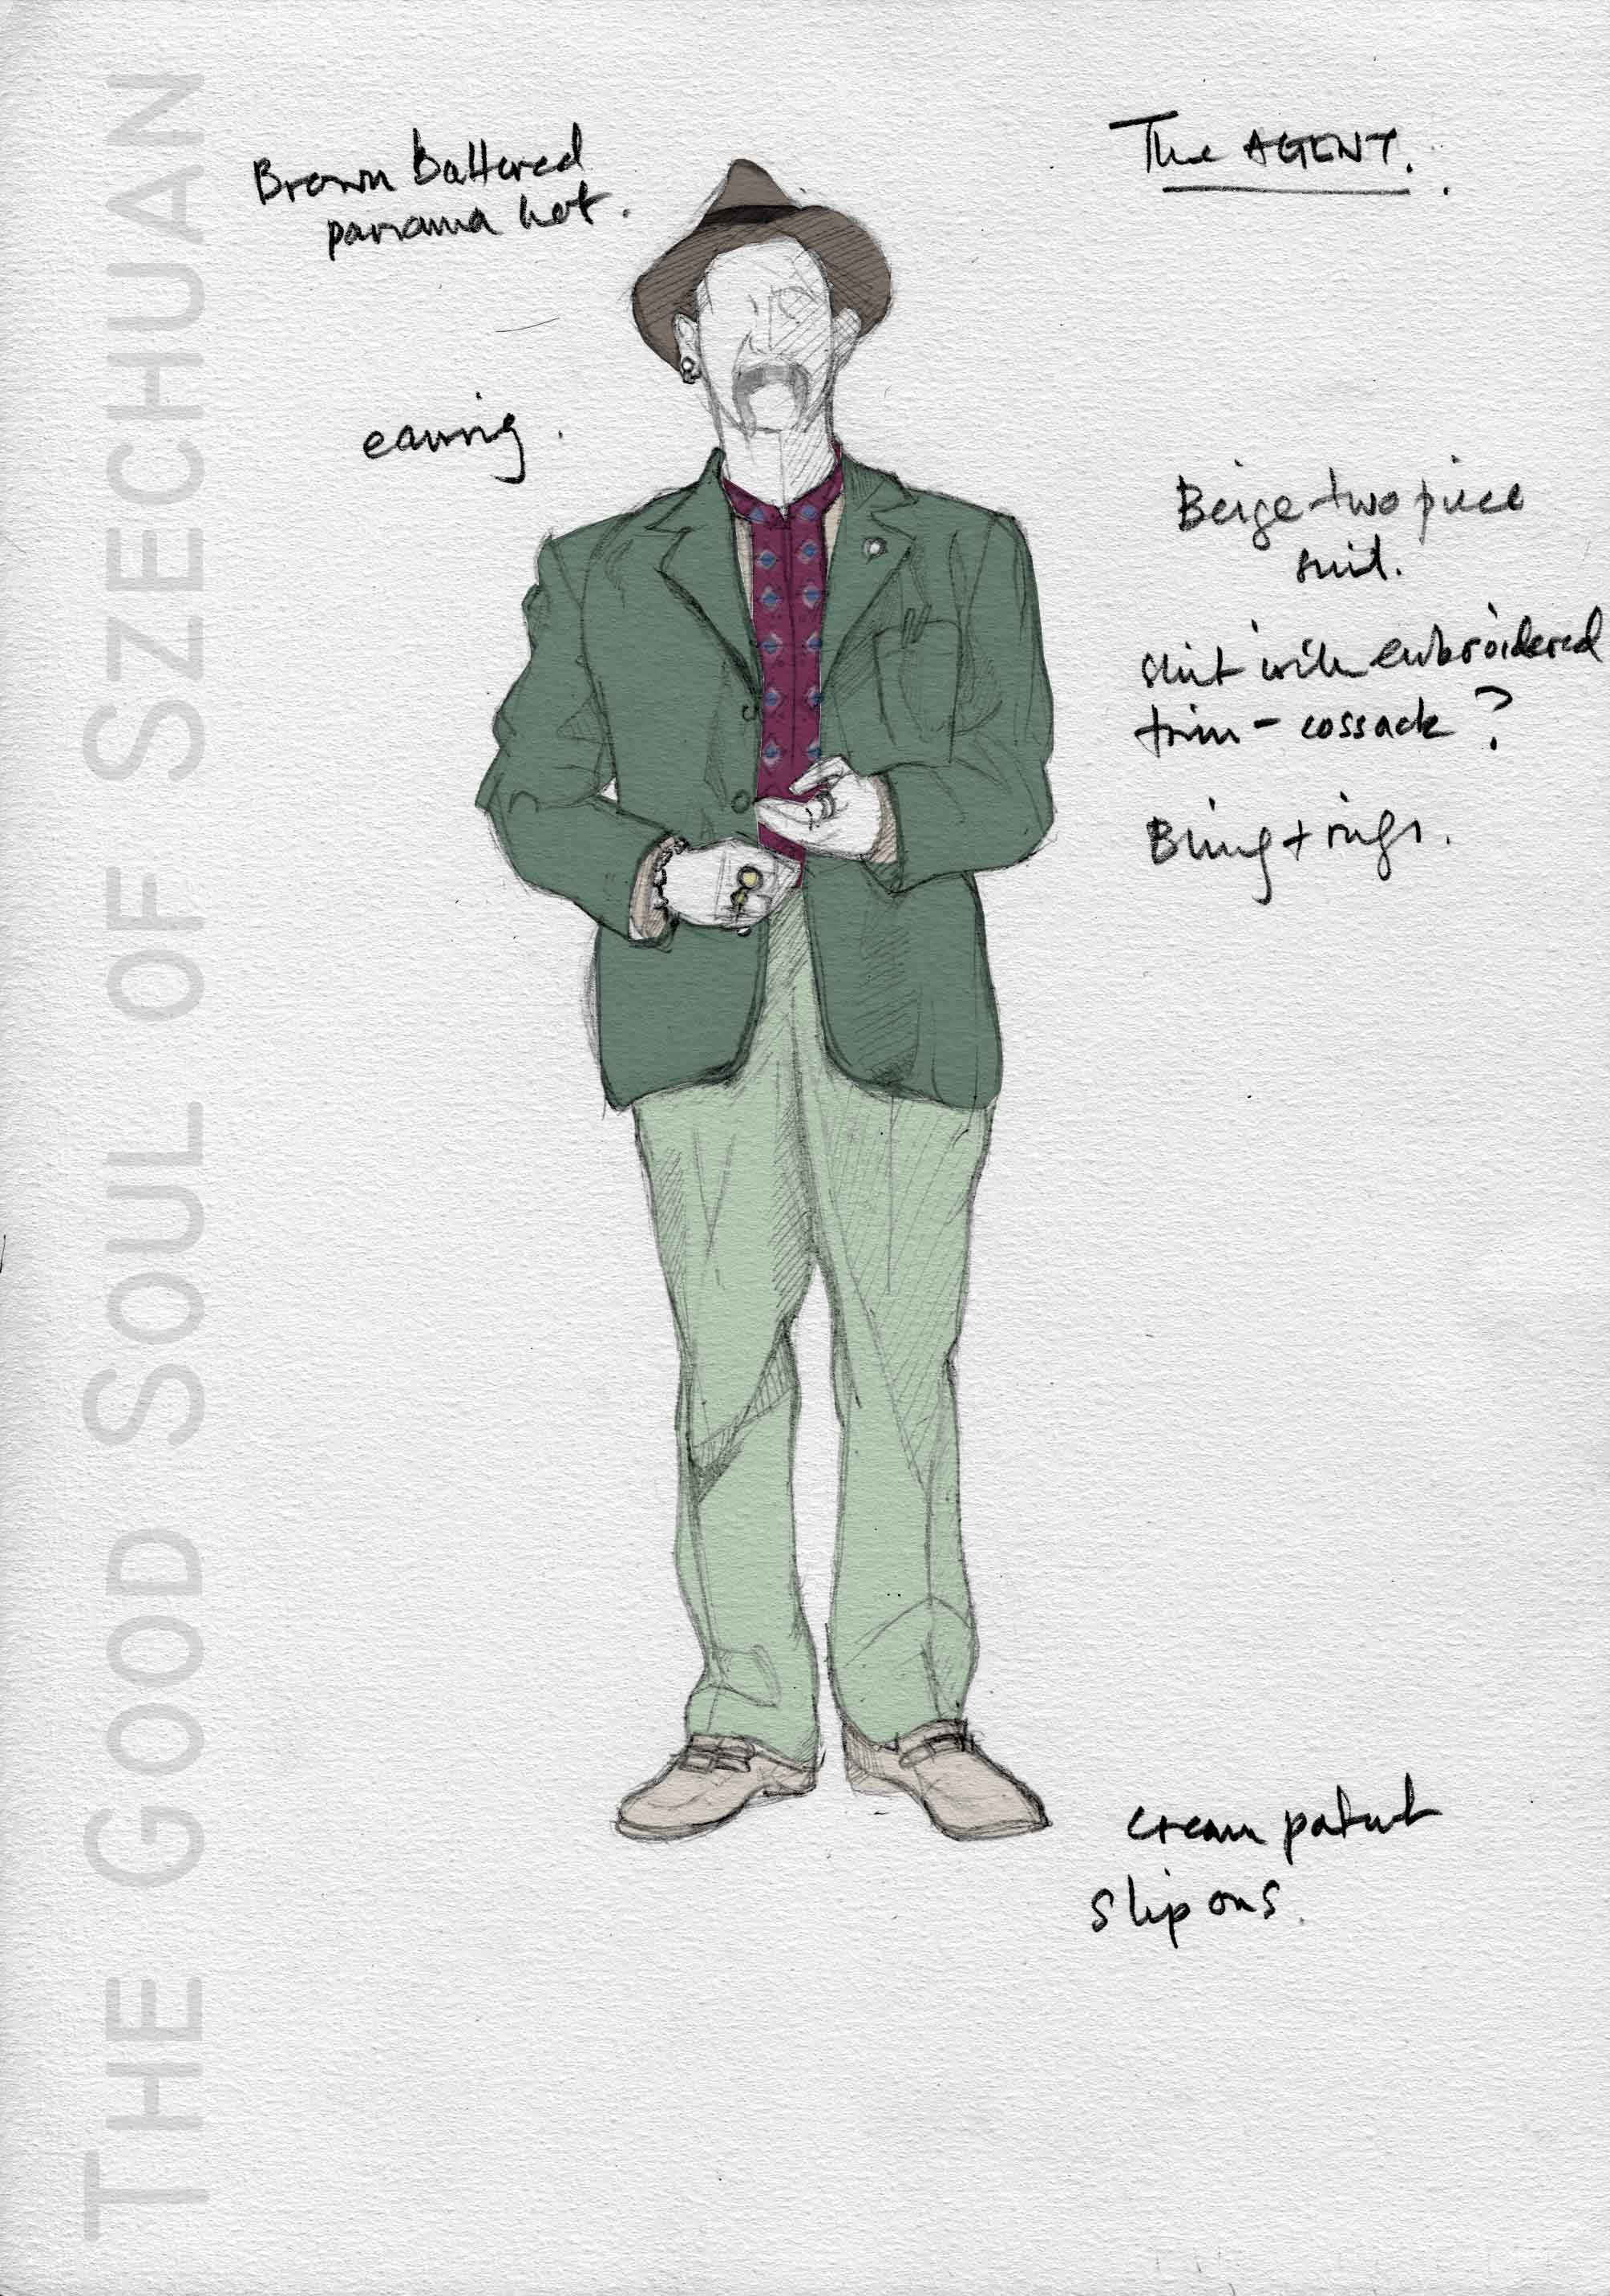 THE GOOD SOUL OF SZECHUAN
The AGENT.
Brown Battered
panama hat.
earring.
Beige two piece
suit.
shirt with embroidered
trim - cossack ?
Bling + rings.
cream patent
slip ons.